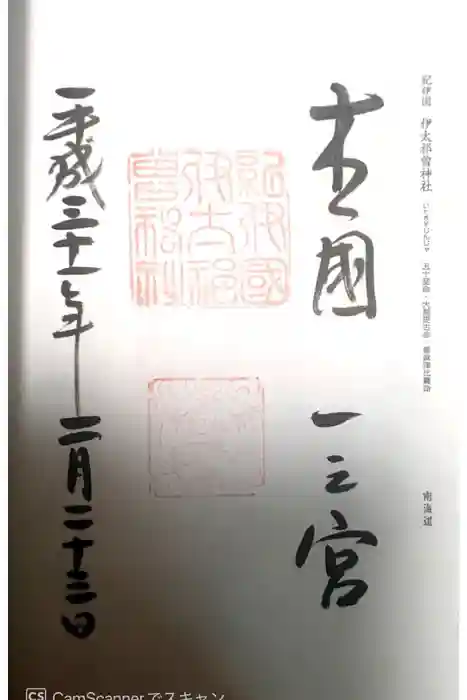 紀伊国 伊太祁曽神社 いたきそじんじゃ 五十猛命・大屋津比売命・都麻津比売命
南海道
木國 一之宮
紀伊國伊太祁曽神社
平成三十一年二月二十三日
CS CamScannerでスキャン